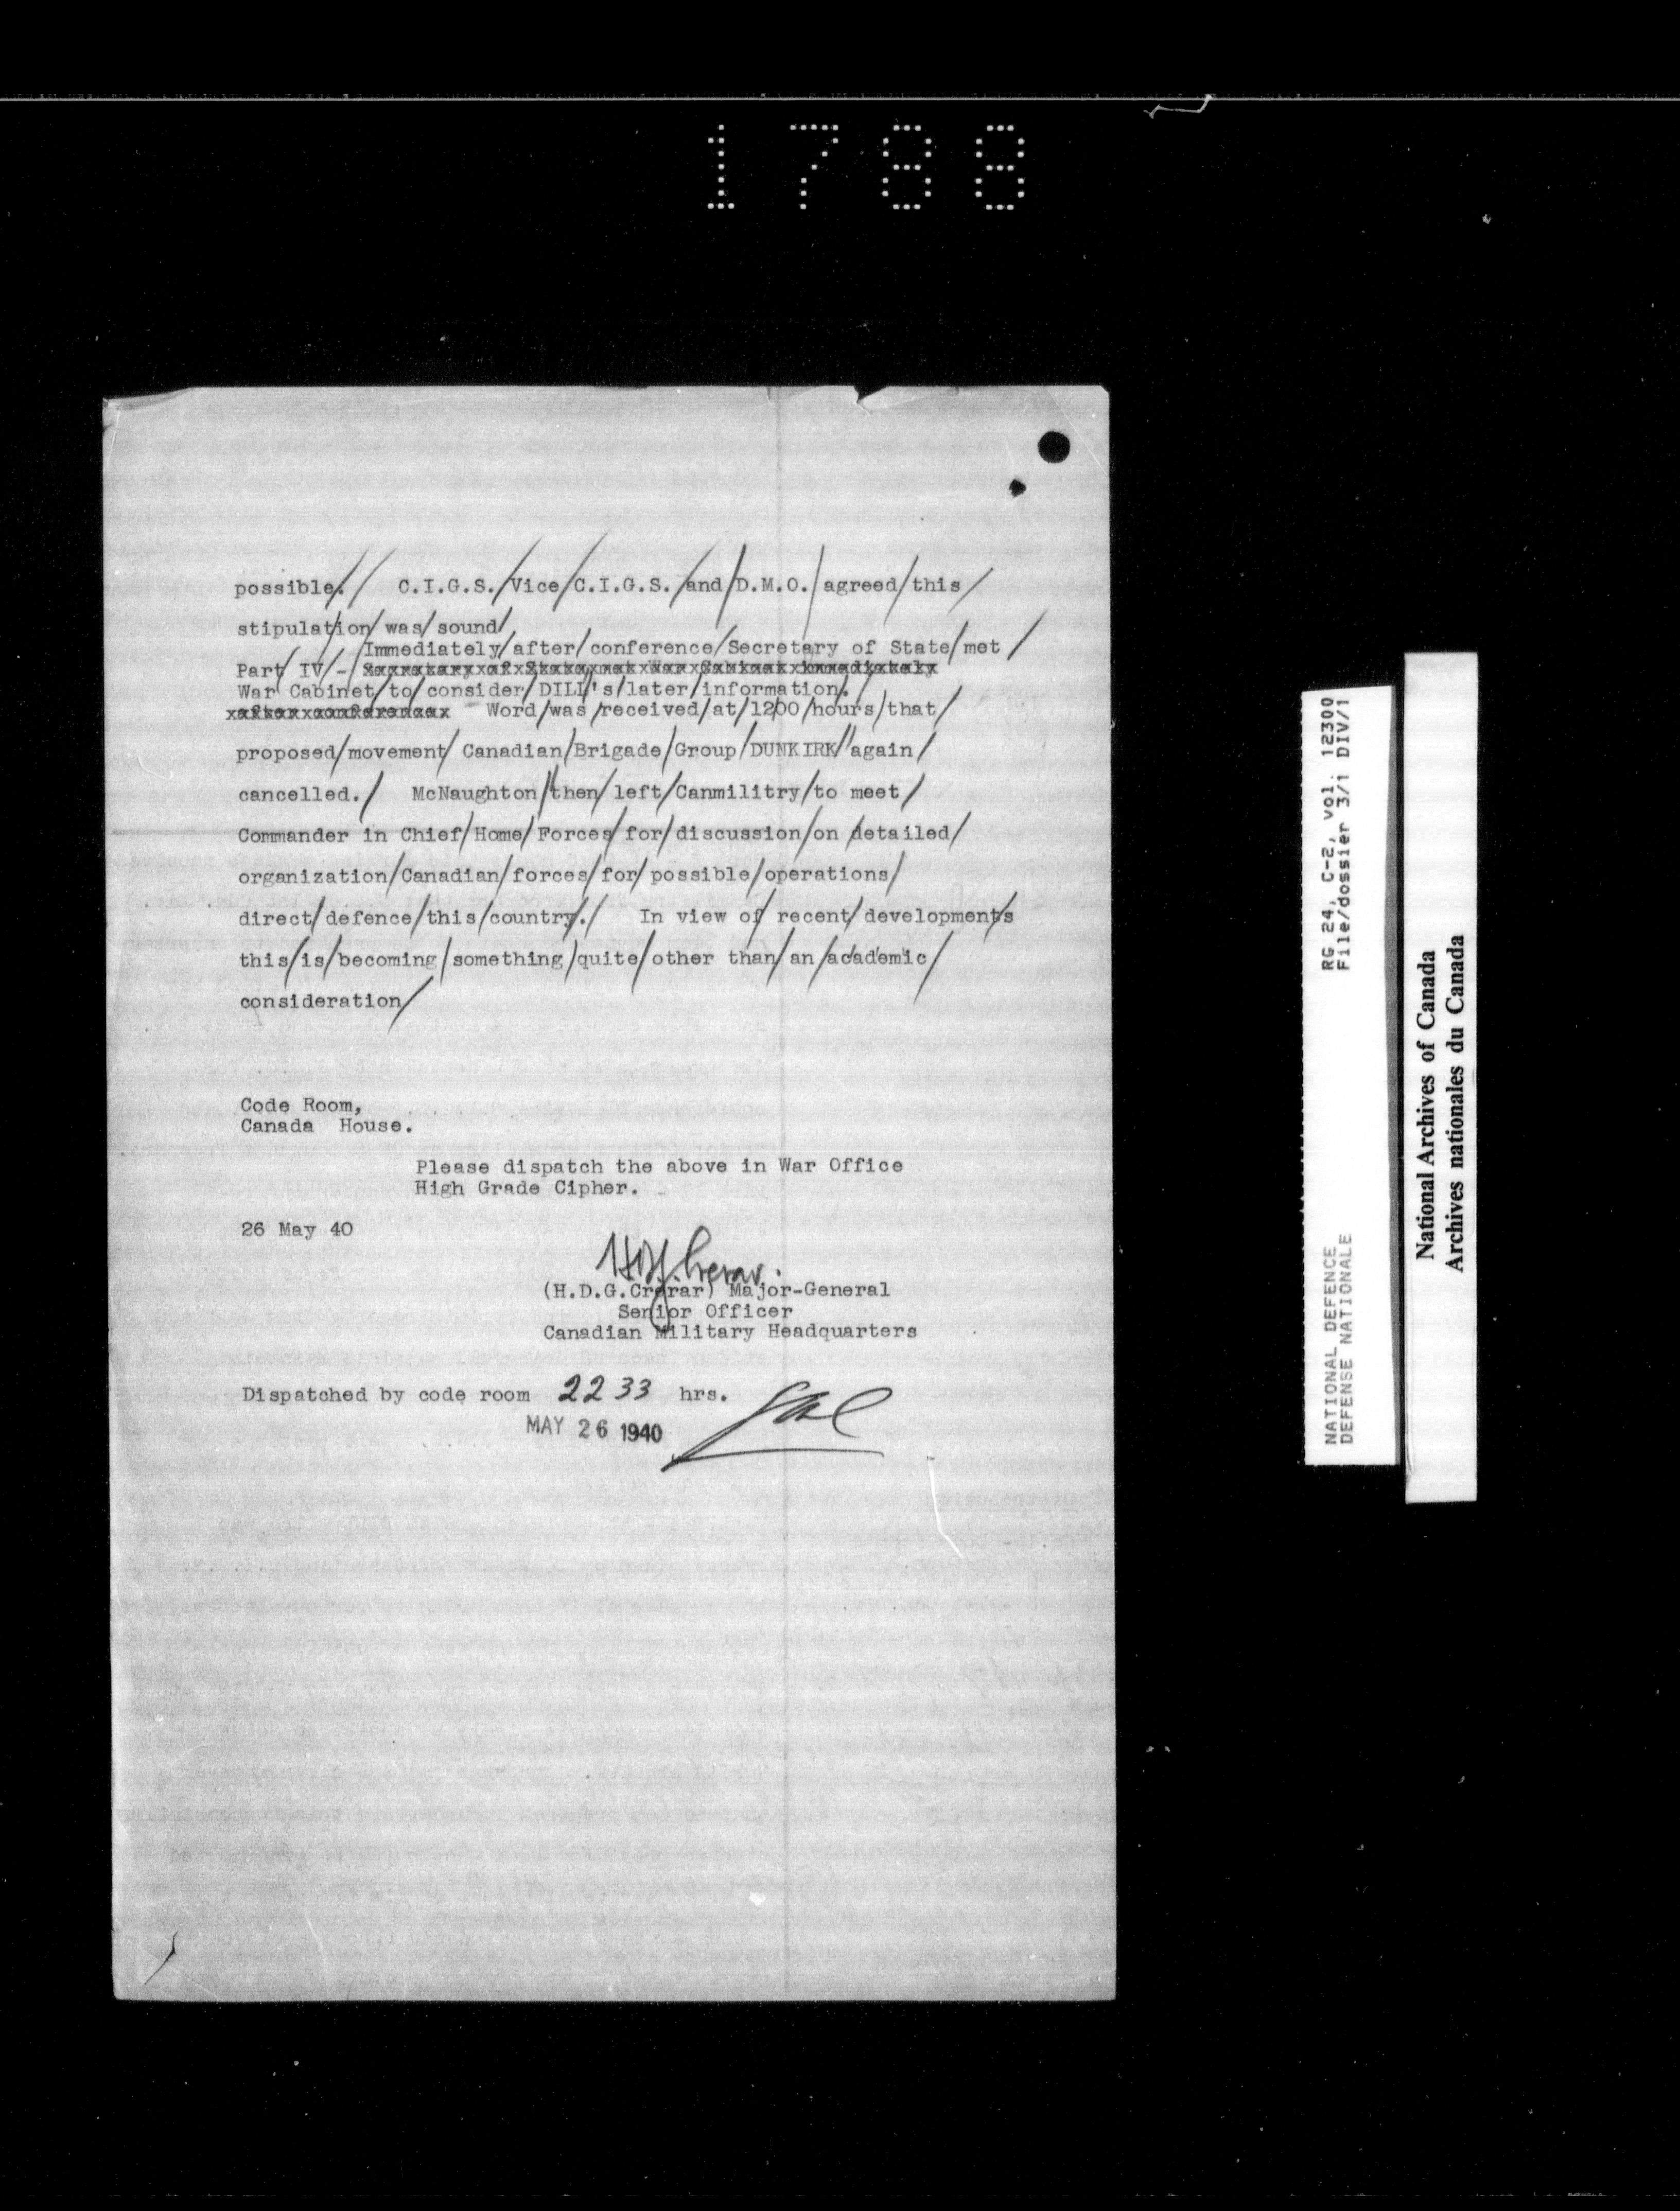 1788
possible. C.I.G.S. Vice C.I.G.S. and D.M.O. agreed this
stipulation was sound
Immediately after conference Secretary of State met
Part IV - Secretary of State met War Cabinet immediately
War Cabinet to consider DILL's later information.
after conference Word was received at 1200 hours that
proposed movement Canadian Brigade Group DUNKIRK again
cancelled. McNaughton then left Canmilitry to meet
Commander in Chief Home Forces for discussion on detailed
organization Canadian forces for possible operations
direct defence this country. In view of recent developments
this is becoming something quite other than an academic
consideration
Code Room,
Canada House.
Please dispatch the above in War Office
High Grade Cipher.
26 May 40
H.D.G. Crerar.
(H.D.G.Crerar) Major-General
Senior Officer
Canadian Military Headquarters
Dispatched by code room 2233 hrs.
MAY 26 1940
RG 24, C-2, vol. 12300
File/dossier 3/1 DIV/1
NATIONAL DEFENCE
DEFENSE NATIONALE
National Archives of Canada
Archives nationales du Canada